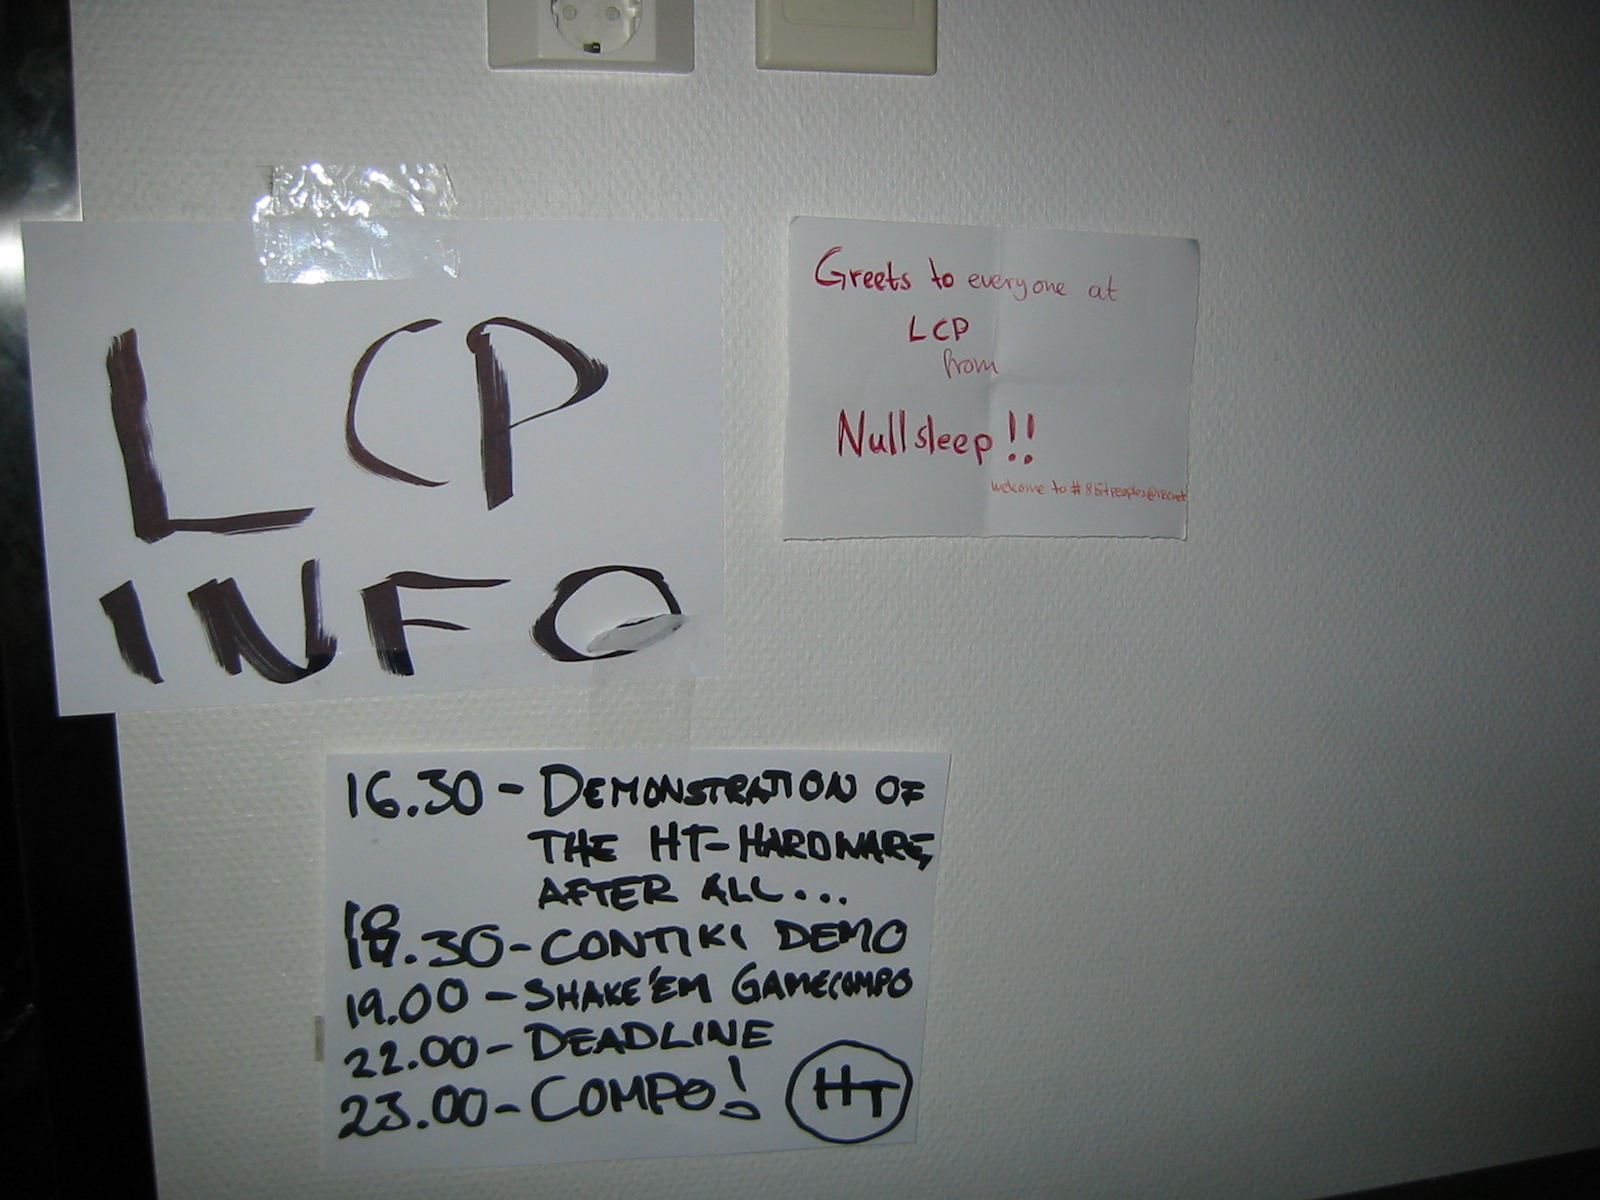 LCP
INFO
Greets to everyone at
LCP
from
Nullsleep!!
welcome to #8bitpeoples@ircnet
16.30 - DEMONSTRATION OF
THE HT-HARDWARE,
AFTER ALL...
18.30 - CONTIKI DEMO
19.00 - SHAKE'EM GAMECOMPO
22.00 - DEADLINE
23.00 - COMPO!
HT